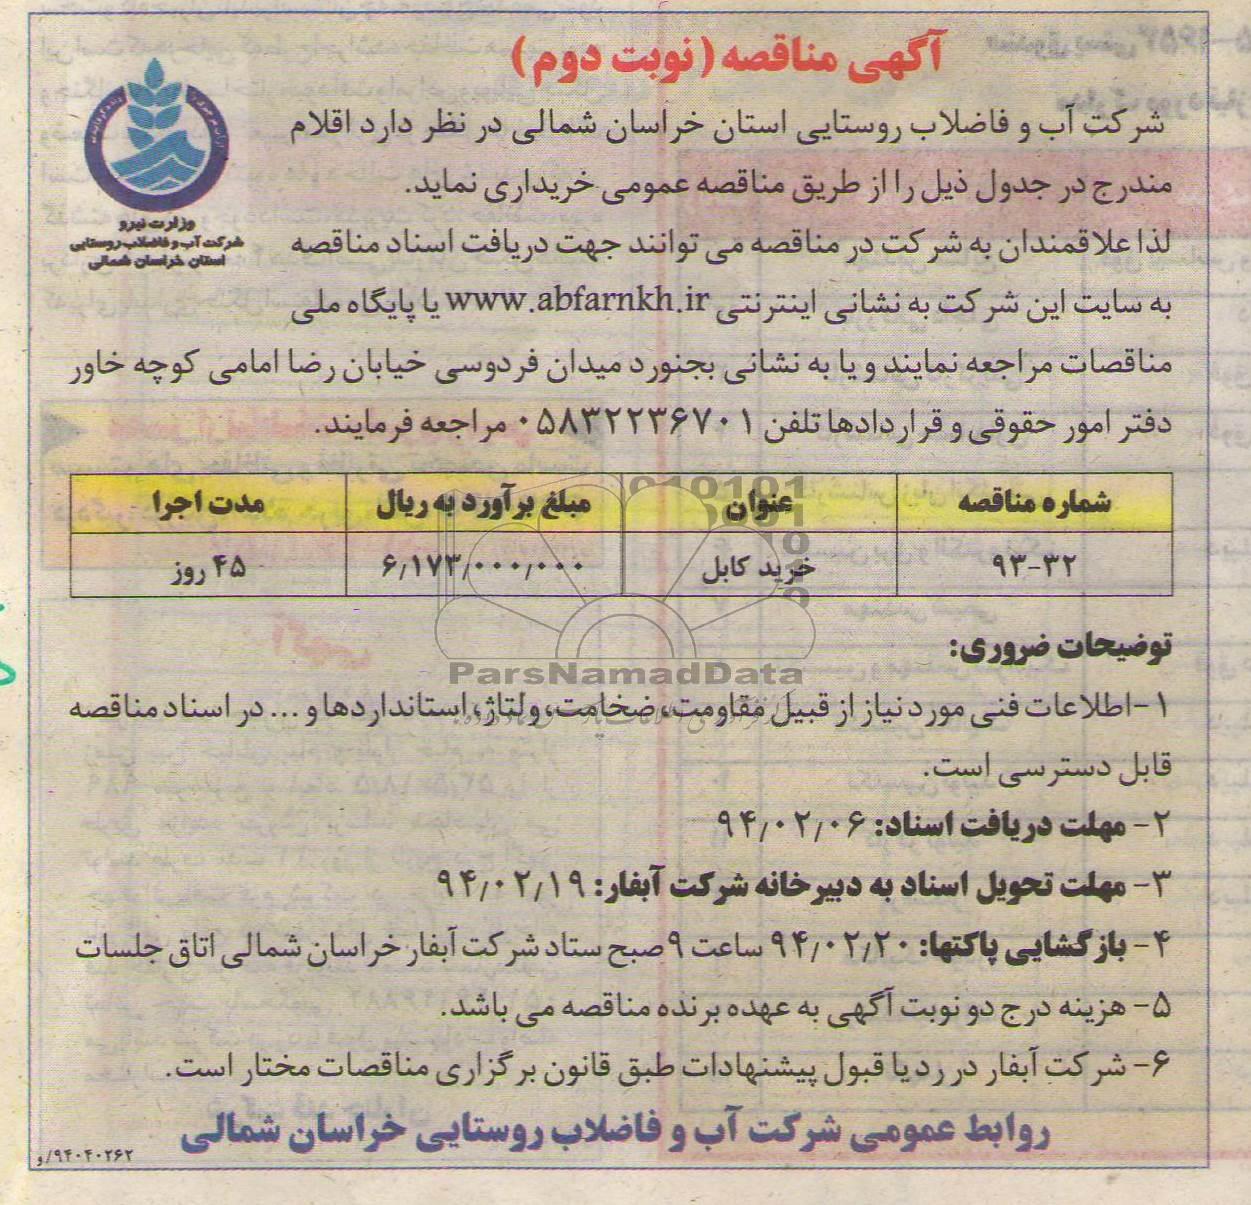 آگهی مناقصه (نوبت دوم)
شرکت آب و فاضلاب روستایی استان خراسان شمالی در نظر دارد اقلام
مندرج در جدول ذیل را از طریق مناقصه عمومی خریداری نماید.
وزارت نیرو
شرکت آب و فاضلاب روستایی
استان خراسان شمالی
لذا علاقمندان به شرکت در مناقصه می توانند جهت دریافت اسناد مناقصه
به سایت این شرکت به نشانی اینترنتی www.abfarnkh.ir یا پایگاه ملی
مناقصات مراجعه نمایند و یا به نشانی بجنورد میدان فردوسی خیابان رضا امامی کوچه خاور
دفتر امور حقوقی و قراردادها تلفن ۰۵۸۳۲۲۳۶۷۰۱ مراجعه فرمایند.
شماره مناقصه عنوان مبلغ برآورد به ریال مدت اجرا
۹۳-۳۲ خرید کابل ۶٫۱۷۳٫۰۰۰٫۰۰۰ ۴۵ روز
توضیحات ضروری:
ParsNamadData
۱-اطلاعات فنی مورد نیاز از قبیل مقاومت، ضخامت، ولتاژ، استانداردها و ... در اسناد مناقصه
قابل دسترسی است.
۲- مهلت دریافت اسناد: ۹۴٫۰۲٫۰۶
۳- مهلت تحویل اسناد به دبیرخانه شرکت آبفار: ۹۴٫۰۲٫۱۹
۴- بازگشایی پاکتها: ۹۴٫۰۲٫۲۰ ساعت ۹ صبح ستاد شرکت آبفار خراسان شمالی اتاق جلسات
۵- هزینه درج دو نوبت آگهی به عهده برنده مناقصه می باشد.
۶- شرکت آبفار در رد یا قبول پیشنهادات طبق قانون برگزاری مناقصات مختار است.
روابط عمومی شرکت آب و فاضلاب روستایی خراسان شمالی
۹۴۰۴۰۲۶۲/و